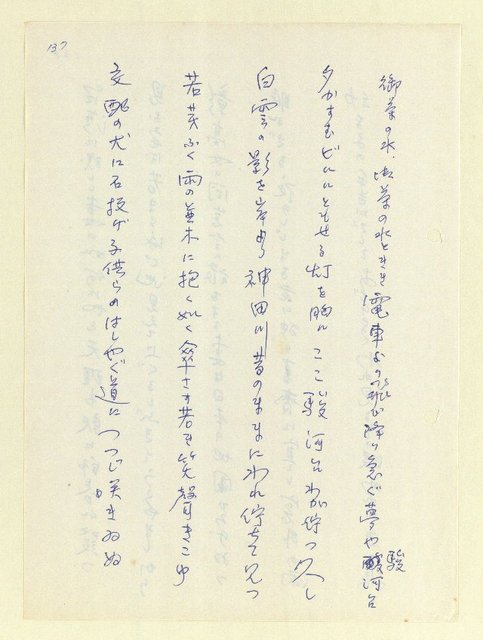 137
御茶の水、御茶の水ときき電車より飛び降り急ぐ夢や駿河台
夕かすむビルにともせる灯を胸にここ駿河台わが佇つ久し
白雲の影を岸より神田川昔のままにわれ佇ちて見つ
若芽ふく雨の並木に抱く如く傘さす若き笑聲きこゆ
交配の犬に石投げ子供らのはしやぐ道につつじ咲きゐぬ